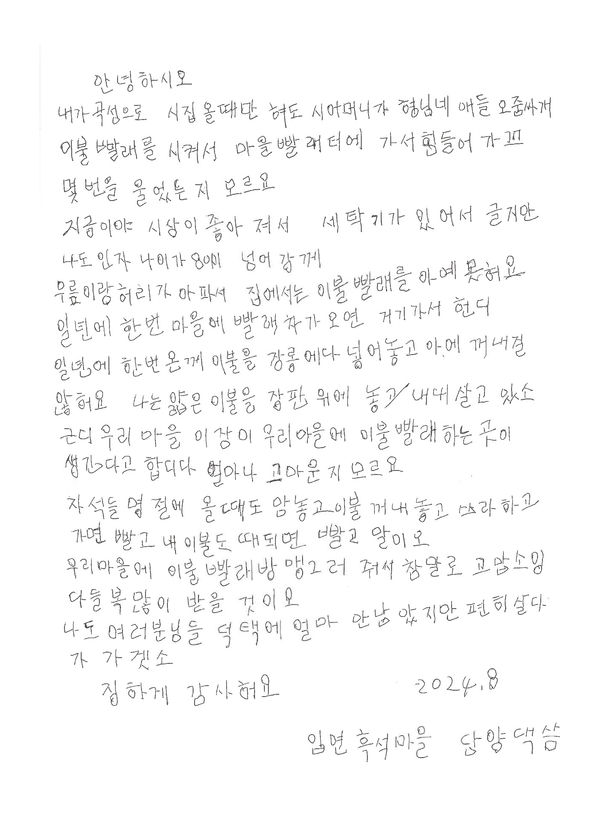 안녕하시오
내가 곡성으로 시집 올때만 혀도 시어머니가 형님네 애들 오줌싸게
이불 빨래를 시켜서 마을 빨래터에 가서 힘들어 가꼬
몇번을 울었는지 모르요
지금이야 시상이 좋아 져서 세탁기가 있어서 글지만
나도 인자 나이가 80이 넘어 강께
무릎이랑 허리가 아파서 집에서는 이불 빨래를 아예 못혀요
일년에 한번 마을에 빨래차가 오면 거기가서 헌디
일년에 한번 온께 이불을 장롱에다 넣어놓고 아에 꺼내질
않혀요 나는 얇은 이불을 장판 위에 놓고 내내 살고 있소
근디 우리 마을 이장이 우리마을에 이불빨래하는 곳이
생긴다고 합디다 얼마나 고마운지 모르요
자석들 명절에 올때도 암놓고 이불 꺼내놓고 쓰라하고
가면 빨고 내 이불도 때되면 빨고 말이오
우리마을에 이불 빨래방 맹그러 줘서 참말로 고맙소잉
다들 복많이 받을 것이오
나도 여러분님들 덕택에 얼마 안남았지만 편히 살다
가 가겟소
징하게 감사혀요 2024.8
입면 흑석마을 담양댁 씀